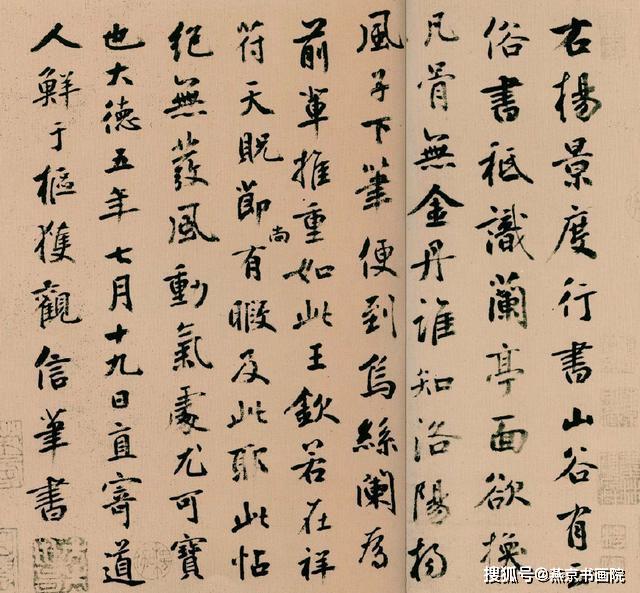 右楊景度行書山谷有云
俗書秪識蘭亭面欲換
凡骨無金丹誰知洛陽楊
風子下筆便到烏絲闌為
前輩推重如此王欽若在祥
符天貺節尚有暇及此耶此帖
絕無發風動氣處尤可寶
也大德五年七月十九日直寄道
人鮮于樞獲觀信筆書
搜狐号@燕京书画院